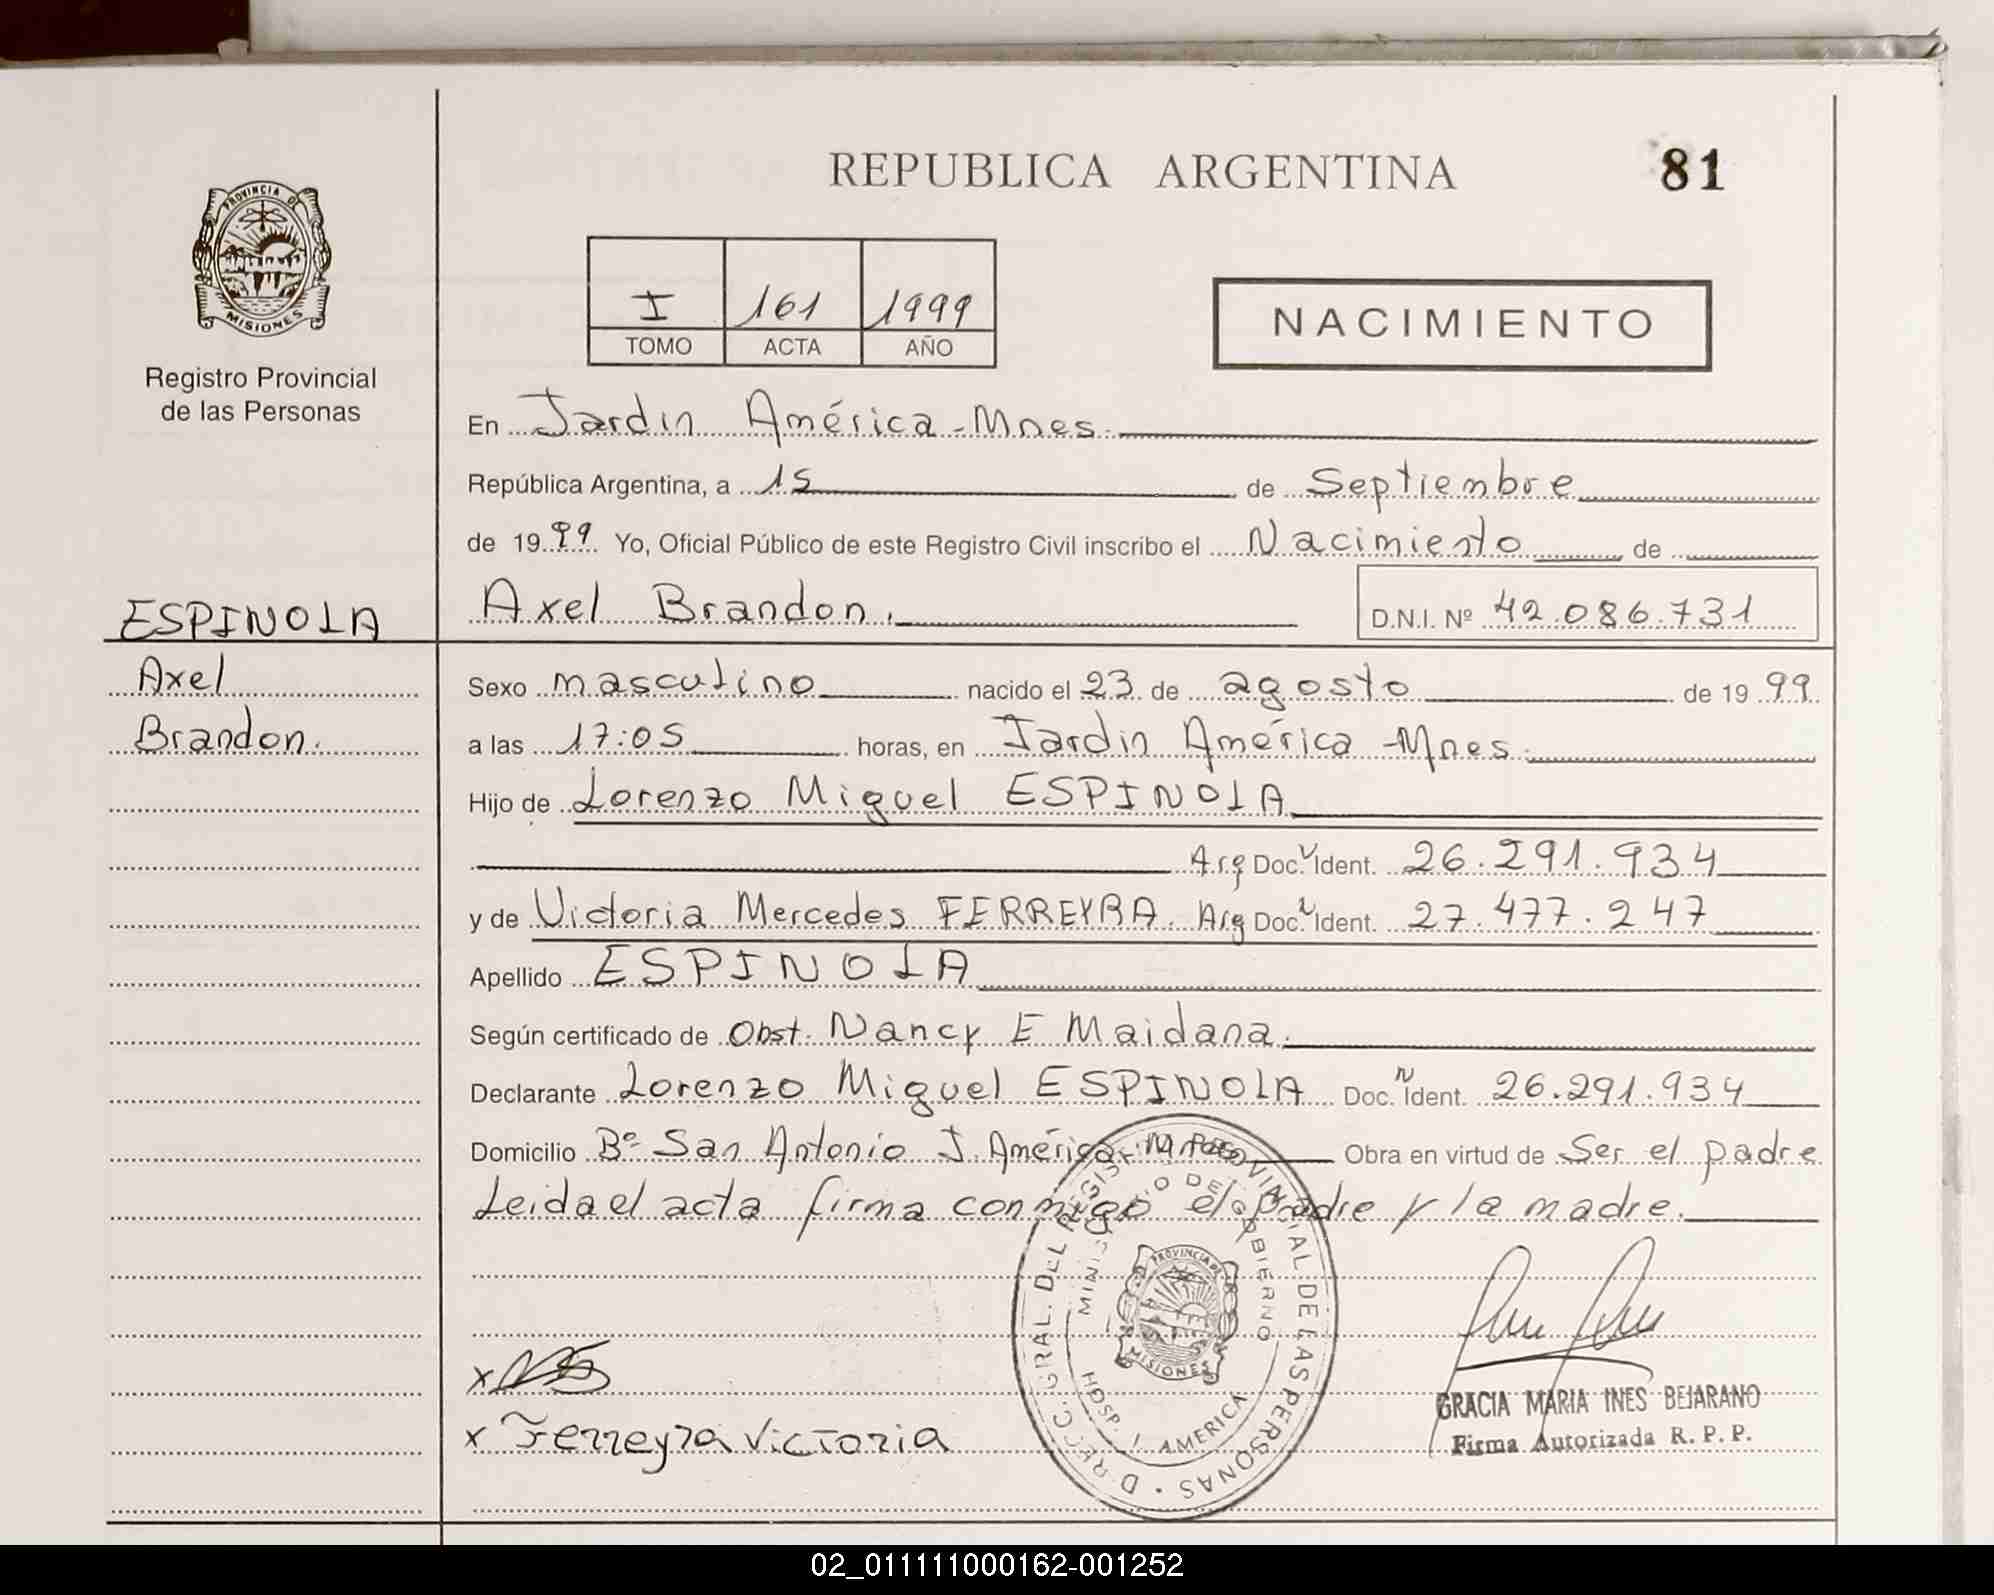 REPUBLICA ARGENTINA
81
PROVINCIA DE
MISIONES
Registro Provincial
de las Personas
I 161 1999
TOMO ACTA AÑO
NACIMIENTO
En Jardin América - Mnes.
República Argentina, a 15 de Septiembre
de 1999 Yo, Oficial Público de este Registro Civil inscribo el Nacimiento de
ESPINOLA
Axel
Brandon.
Axel Brandon.
D.N.I. Nº 42.086.731
Sexo masculino nacido el 23 de agosto de 1999.
a las 17:05 horas, en Jardin América - Mnes.
Hijo de Lorenzo Miguel ESPINOLA
Arg Doc. Ident. 26.291.934
y de Victoria Mercedes FERREYRA. Arg Doc. Ident. 27.477.247
Apellido ESPINOLA
Según certificado de Obst. Nancy E Maidana.
Declarante Lorenzo Miguel ESPINOLA Doc. N Ident. 26.291.934
Domicilio Bº San Antonio J. América - Mnes Obra en virtud de Ser el padre
Leida el acta firma conmigo el padre y la madre.
DIRECC. GRAL. DEL REGIST. PROVINCIAL DE LAS PERSONAS
MINISTERIO DE GOBIERNO
PROVINCIA DE
MISIONES
HOSP. J. AMERICA
x
x Ferreyra Victoria
GRACIA MARIA INES BEJARANO
Firma Autorizada R. P. P.
02_011111000162-001252